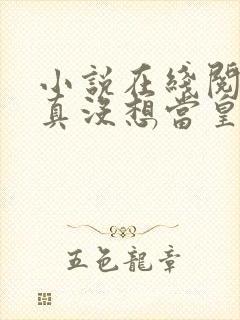 小說在綫閱
真沒想當皇
五色龍章